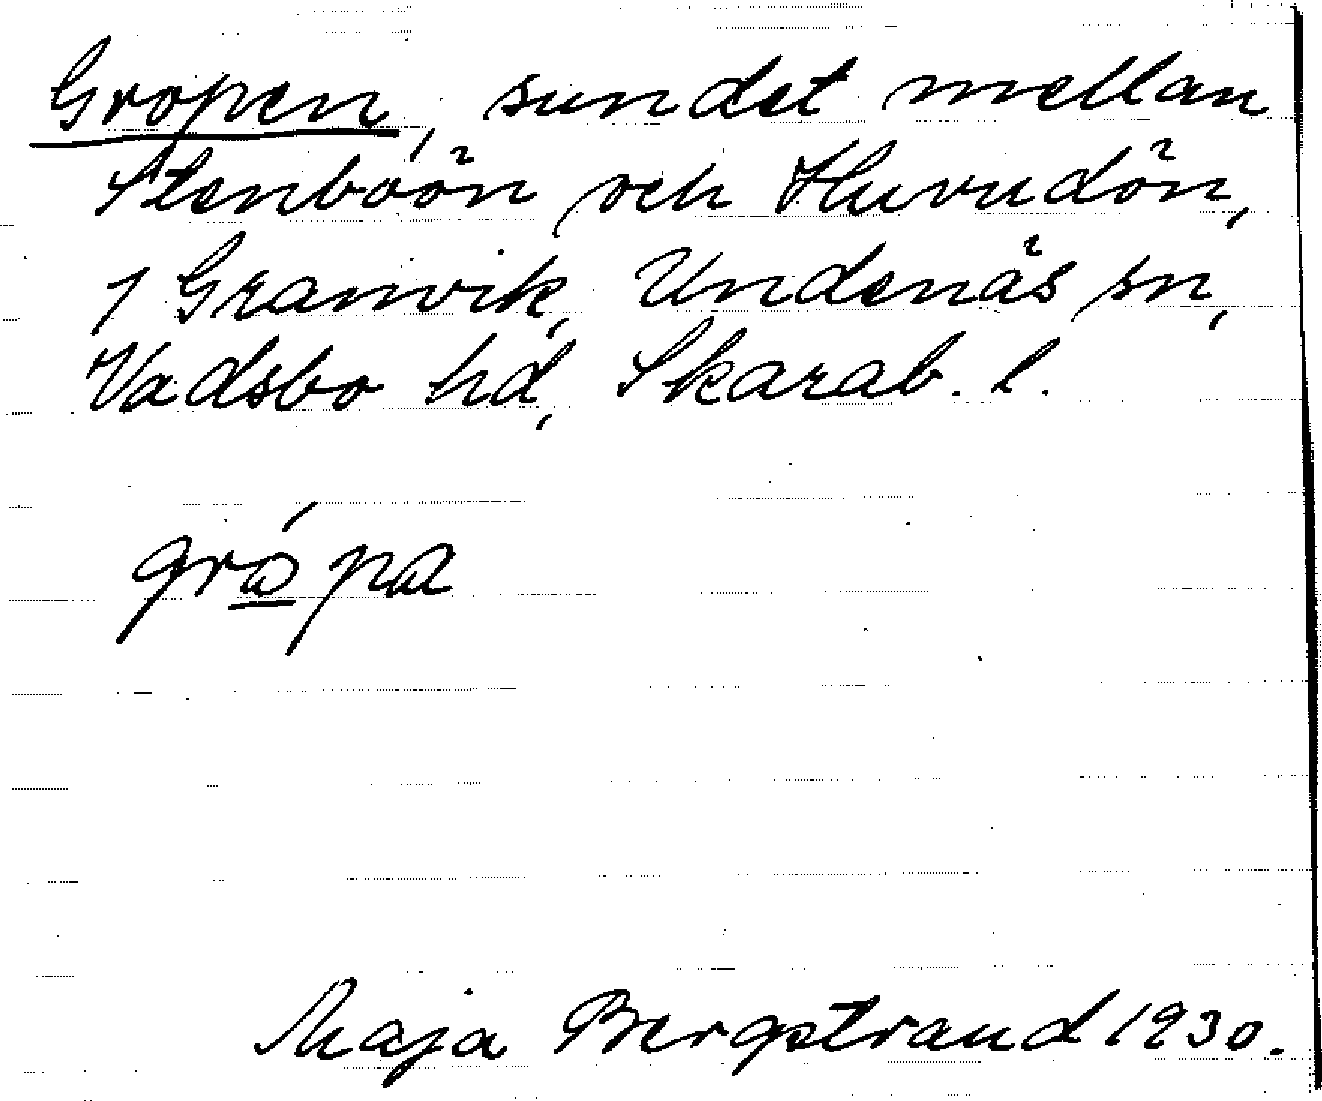 Gropen, sundet mellan
Stenboön och Huvudön,
1 Granvik, Undenäs sn,
Vadsbo hd, Skarab. l.
grǻpa
Maja Bergstrand 1930.